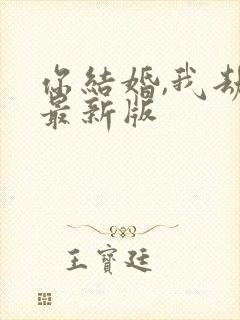 你結婚,我劫
最新版
王寶廷